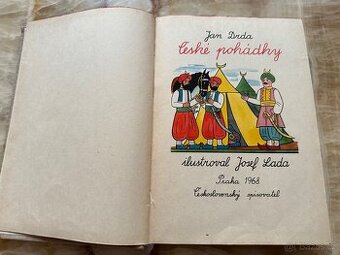 Jan Drda
České pohádky
ilustroval Josef Lada
Praha 1968
Československý spisovatel